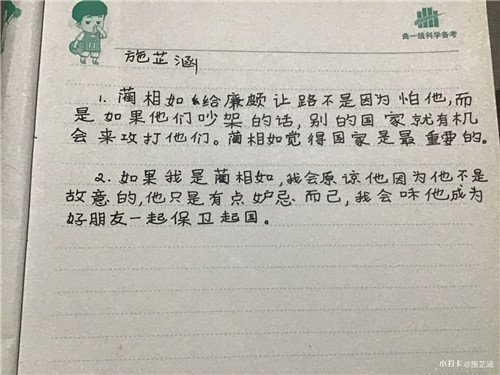 曲一线科学备考
施芷涵
1. 蔺相如给廉颇让路不是因为怕他,而
是如果他们吵架的话,别的国家就有机
会来攻打他们。蔺相如觉得国家是最重要的。
2. 如果我是蔺相如,我会原谅他因为他不是
故意的,他只是有点妒忌而已,我会和他成为
好朋友一起保卫赵国。
小打卡@施芷涵